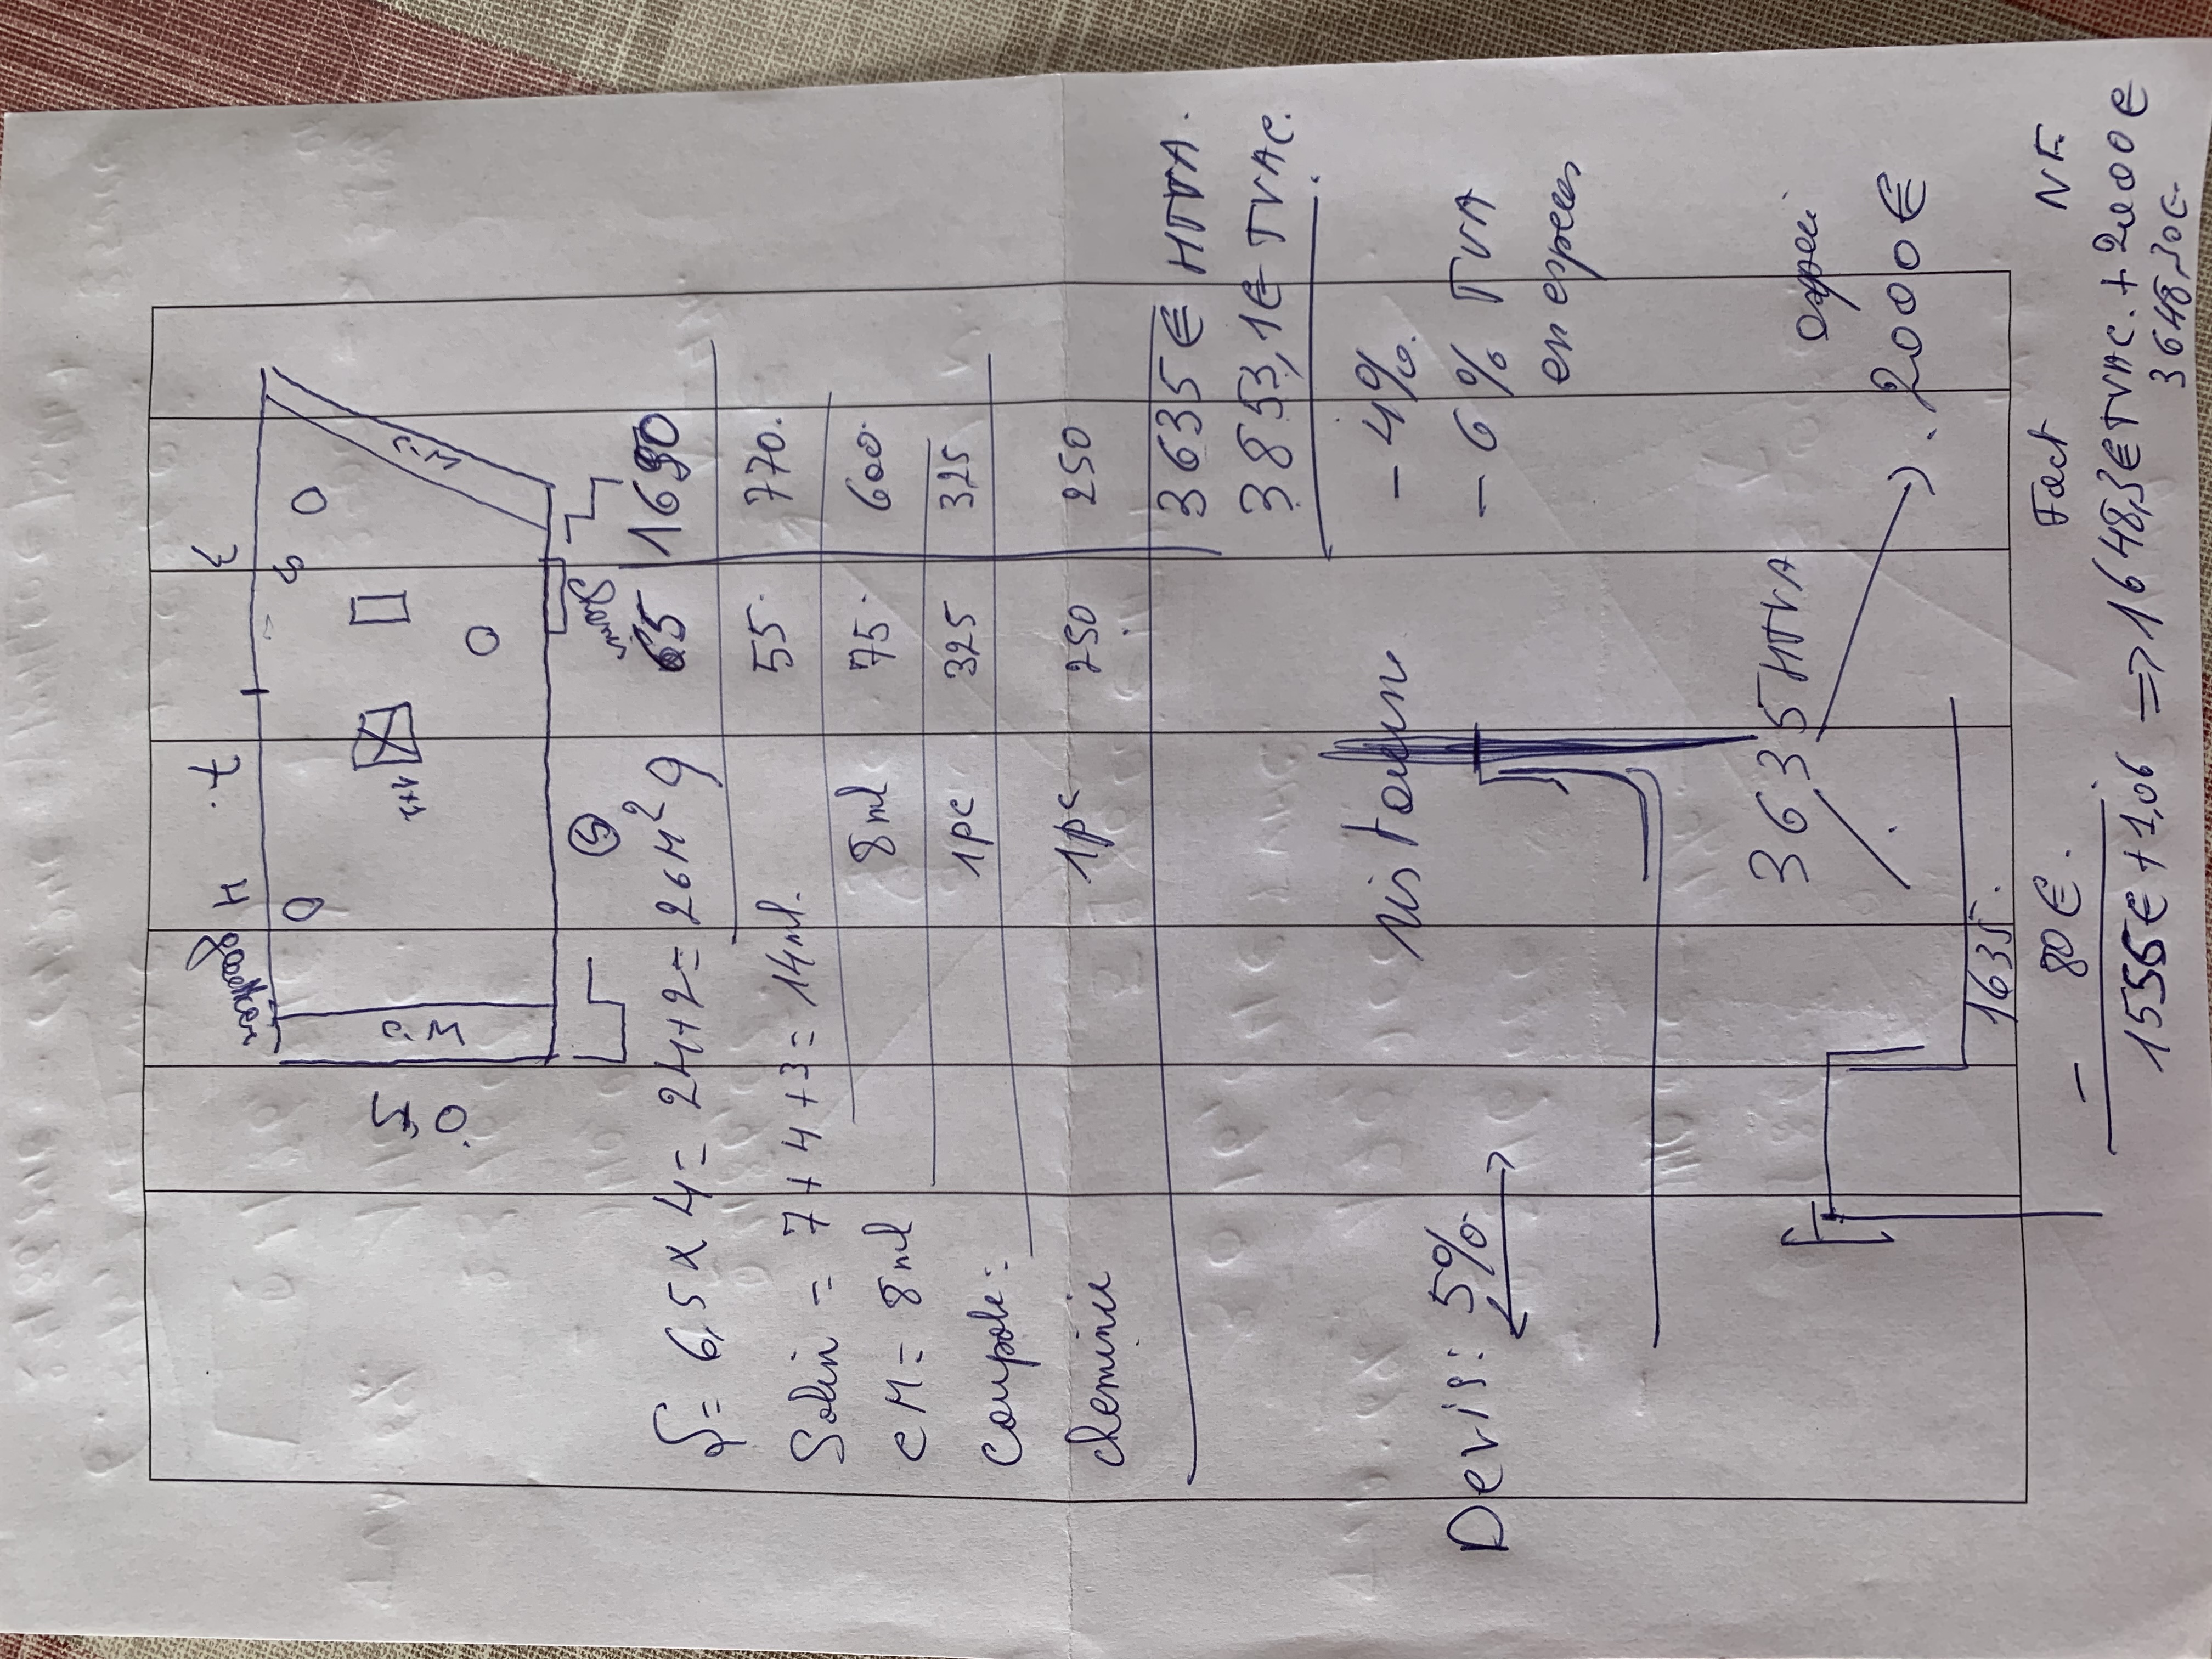 4 7. 3
S = 6,5 x 4 = 24+2 = 26 M² 9 65 1690
Solin = 7 + 4 + 3 = 14 ml. 55. 770.
CM = 8 ml 8 ml 75. 600.
Coupole : 1pc 325 325
cheminée 1pc 250 250
3635 € HTVA.
3853,1€ TVAC.
- 4%.
Devis : 5% - 6% TVA
en especes
3635 HTVA
2000 €
1635.
Fact NF.
- 80 €.
1555€ + 1,06 => 1648,3€ TVAC. + 2000 €
3648,30€.